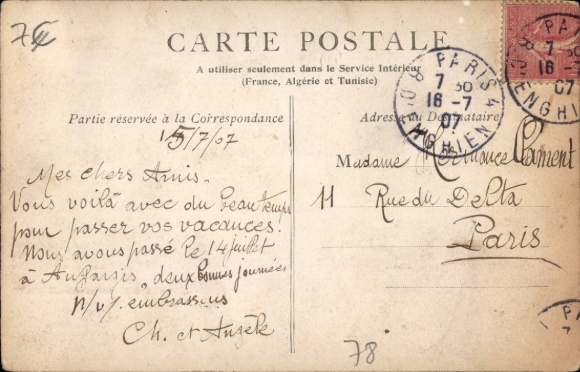 75
CARTE POSTALE
A utiliser seulement dans le Service Intérieur
(France, Algérie et Tunisie)
Partie réservée à la Correspondance
15/7/07
Mes chers Amis.
Vous voilà avec du beau temps
pour passer vos vacances!
Nous avons passé le 14 juillet
à deux bonnes journées
N/v/. embrassons
Ch. et Angèle
Adresse du Destinataire
Madame Clément
11 Rue du Delta
Paris
78
PARIS 4
7 30
16 -7
07
R. D'ENGHIEN
PA
7 30
16
07
ENGHI
PA
7